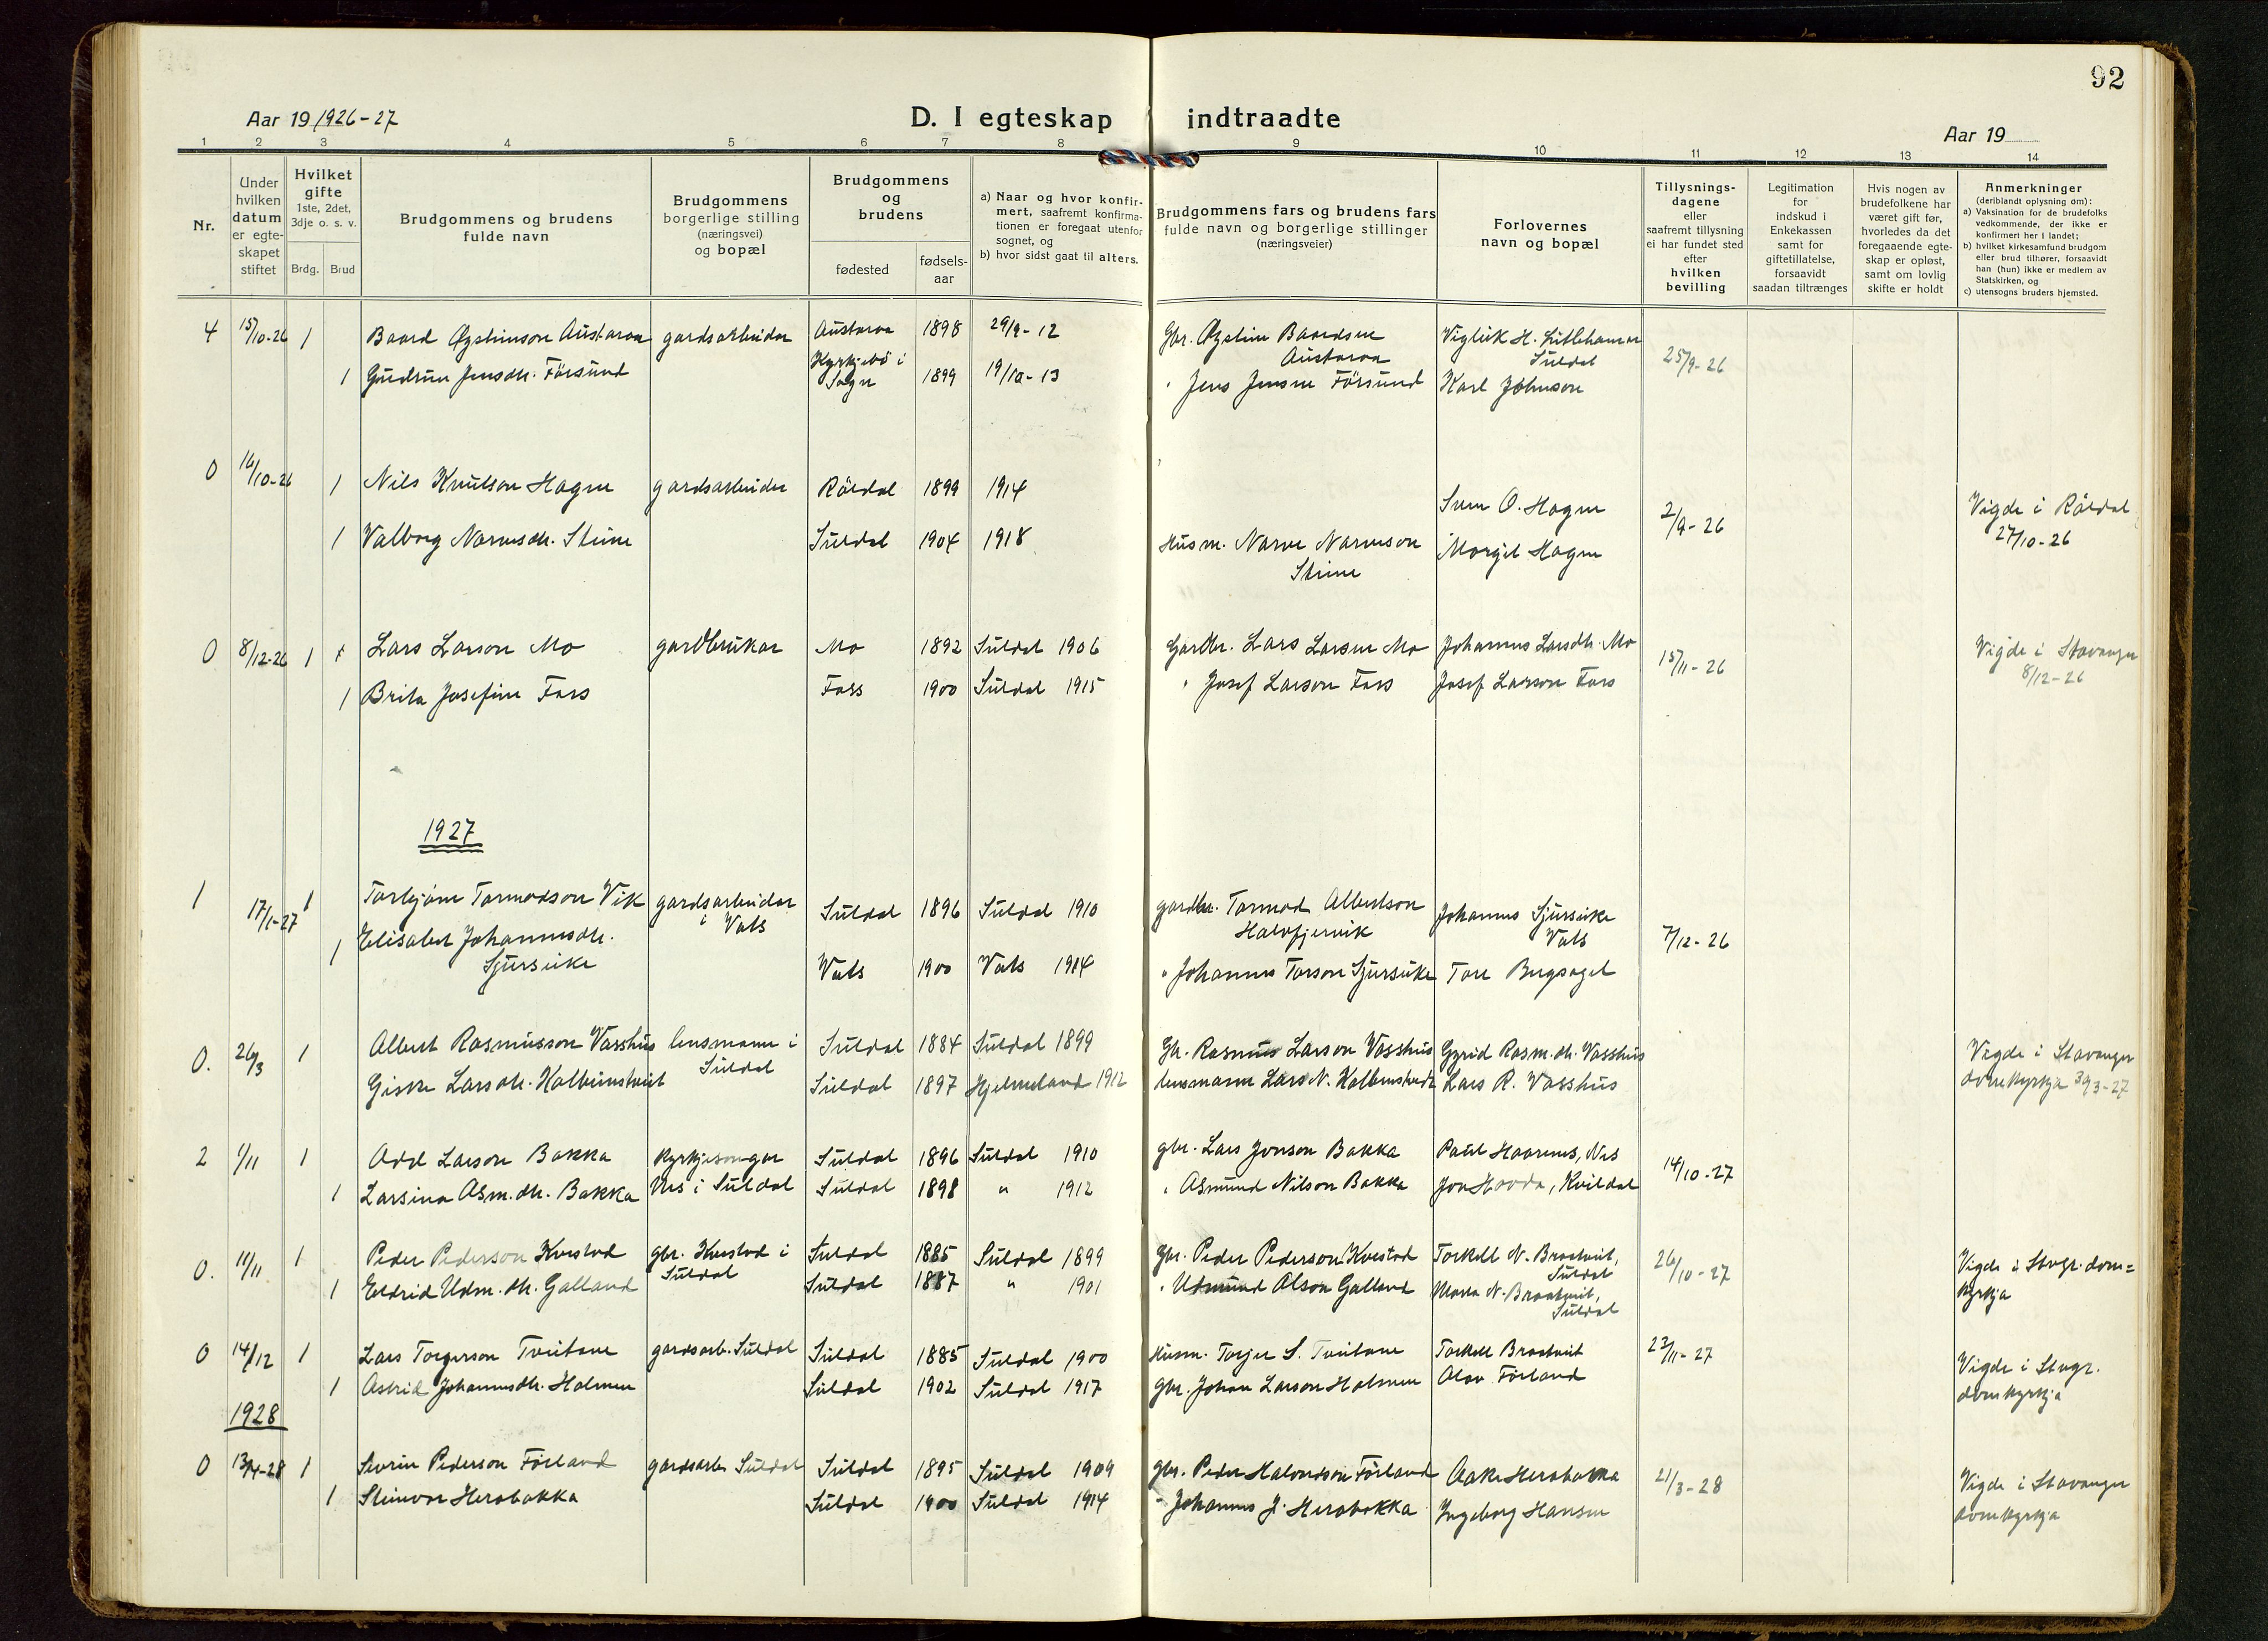 92
Aar 19 1926-27
D. I egteskap indtraadte
Aar 19
1 2 3 4 5 6 7 8 9 10 11 12 13 14
Nr.
Under hvilken datum er egteskapet stiftet
Hvilket gifte 1ste, 2det, 3dje o. s. v.
Brdg. Brud
Brudgommens og brudens fulde navn
Brudgommens borgerlige stilling (næringsvei) og bopæl
Brudgommens og brudens
fødested
fødsels-aar
a) Naar og hvor konfirmert, saafremt konfirmationen er foregaat utenfor sognet, og
b) hvor sidst gaat til alters.
Brudgommens fars og brudens fars fulde navn og borgerlige stillinger (næringsveier)
Forlovernes navn og bopæl
Tillysningsdagene eller saafremt tillysning ei har fundet sted efter hvilken bevilling
Legitimation for indskud i Enkekassen samt for giftetillatelse, forsaavidt saadan tiltrænges
Hvis nogen av brudefolkene har været gift før, hvorledes da det foregaaende egteskap er opløst, samt om lovlig skifte er holdt
Anmerkninger (deriblandt oplysning om):
a) Vaksination for de brudefolks vedkommende, der ikke er konfirmert her i landet;
b) hvilket kirkesamfund brudgom eller brud tilhører, forsaavidt han (hun) ikke er medlem av Statskirken, og
c) utensogns bruders hjemsted.
4 15/10-26 1 Baard Øysteinson Austaraa gardsarbeidar Austaraa 1898 29/9-12 Gbr. Øystein Baardsen Austaraa Vigleik H. Litlehamar Suldal 25/9-26
1 Gudrun Jensdtr. Försund Kyrkjebö i Sogn 1899 19/10-13 " Jens Jensen Försund Karl Johnson
0 16/10-26 1 Nils Knutson Hagen gardsarbeidar Röldal 1899 1914 Sven O. Hagen 2/9-26 Vigde i Röldal 27/10-26
1 Valborg Narvesdtr. Steine Suldal 1904 1918 Husm. Narve Narveson Steine Margit Hagen
0 8/12-26 1 Lars Larson Mo gardbrukar Mo 1892 Suldal 1906 Gardbr. Lars Larsen Mo Johannes Larsdtr. Mo 15/11-26 Vigde i Stavanger 8/12-26
1 Brita Josefine Foss Foss 1900 Suldal 1915 " Josef Larson Foss Josef Larson Foss
1927
1 17/1-27 1 Torbjörn Tormodson Vik gardsarbeidar i Vats Suldal 1896 Suldal 1910 gardbr. Tormod Albertson Halvfjervik Johannes Sjurseike Vats 7/12-26
1 Elisabet Johannesdtr. Sjurseike Vats 1900 Vats 1914 " Johannes Torson Sjurseike Tore Bergsagel
0. 26/3 1 Albert Rasmusson Vasshus lensmann i Suldal Suldal 1884 Suldal 1899 Gbr. Rasmus Larson Vasshus Gyrid Rasm.dtr. Vasshus Vigde i Stavanger domekyrkja 30/3-27
Giske Larsdtr. Kolbeinstveit Suldal 1897 Hjelmeland 1912 lensmann Lars N. Kolbeinstveit Lars R. Vasshus
2 1/11 1 Odd Larson Bakka kyrkjesongar Nes i Suldal Suldal 1896 Suldal 1910 gbr. Lars Jonson Bakka Paul Haarenes, Nes 14/10-27
1 Larsina Asm.dtr. Bakka Suldal 1898 " 1912 " Asmund Nilson Bakka Jon Hovda, Kvildal
0. 11/11 1 Peder Pederson Kvestad gbr. Kvestad i Suldal Suldal 1885 Suldal 1899 Gbr. Peder Pederson Kvestad Torkell N. Bratveit, Suldal 26/10-27 Vigde i Stvgr. dom=kyrkja
1 Eldrid Udm.dtr. Galland Suldal 1887 " 1901 " Udmund Olson Galland Marta N. Bratveit, Suldal
0 14/12 1 Lars Torgerson Tveitane gardsarb. Suldal Suldal 1885 Suldal 1900 Husm. Torjer S. Tveitane Torkell Bratveit 22/11-27 Vigde i Stvgr. domkyrkja
1 Astrid Johannesdtr. Holmen Suldal 1902 Suldal 1917 gbr. Johan Larson Holmen Olav Förland
1928
0 13/4-28 1 Severin Pederson Förland gardsarb. Suldal Suldal 1895 Suldal 1909 gbr. Peder Halvardson Förland Aake Herabakka 21/3-28 Vigde i Stavanger domekyrkja
1 Steinvor Herabakka Suldal 1900 Suldal 1914 " Johannes J. Herabakka Ingeborg Hansen